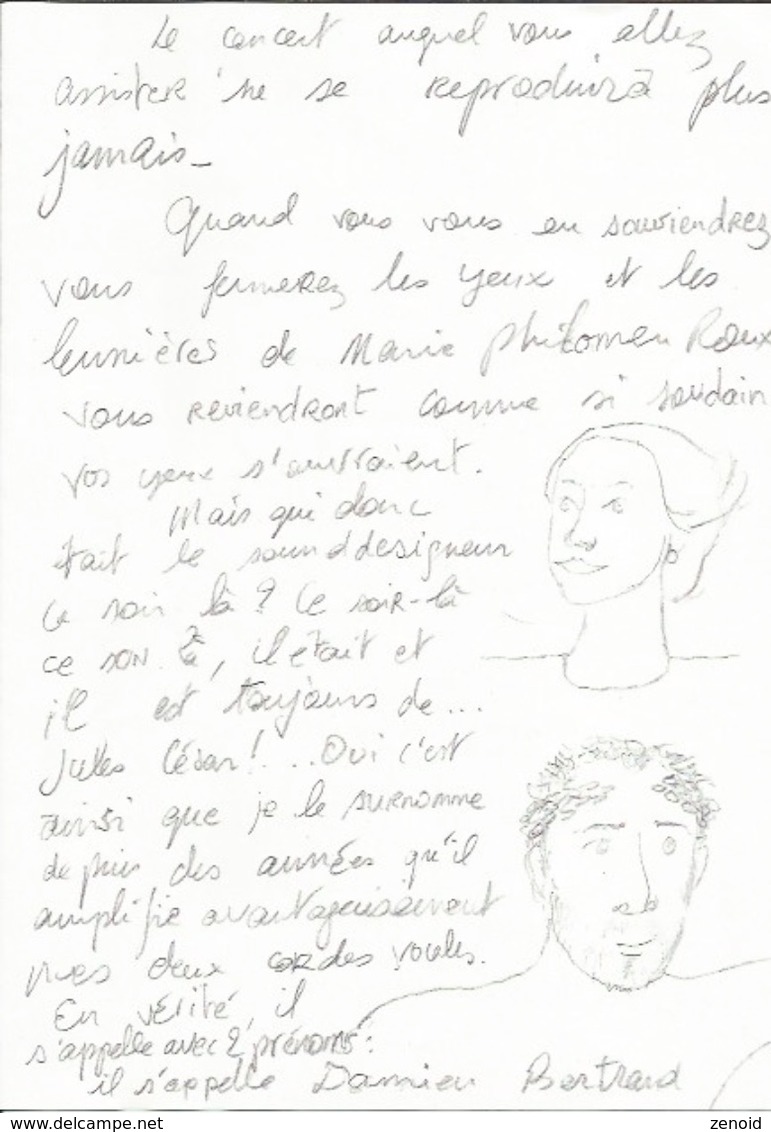 Le concert auquel vous allez
assister ne se reproduira plus
jamais_
Quand vous vous en souviendrez
vous fermerez les yeux et les
lumières de Marie Philomen Roux
vous reviendront comme si soudain
vos yeux s'ouvraient.
Mais qui donc
était le sounddesigneur
ce soir là ? Ce soir-là
ce son. , il était et
il est toujours de...
Jules César! ...Oui c'est
ainsi que je le surnomme
depuis des années qu'il
amplifie avantageusement
mes deux cordes vocales.
En vérité, il
s'appelle avec 2 prénoms :
il s'appelle Damien Bertrand
www.delcampe.net
zenoid